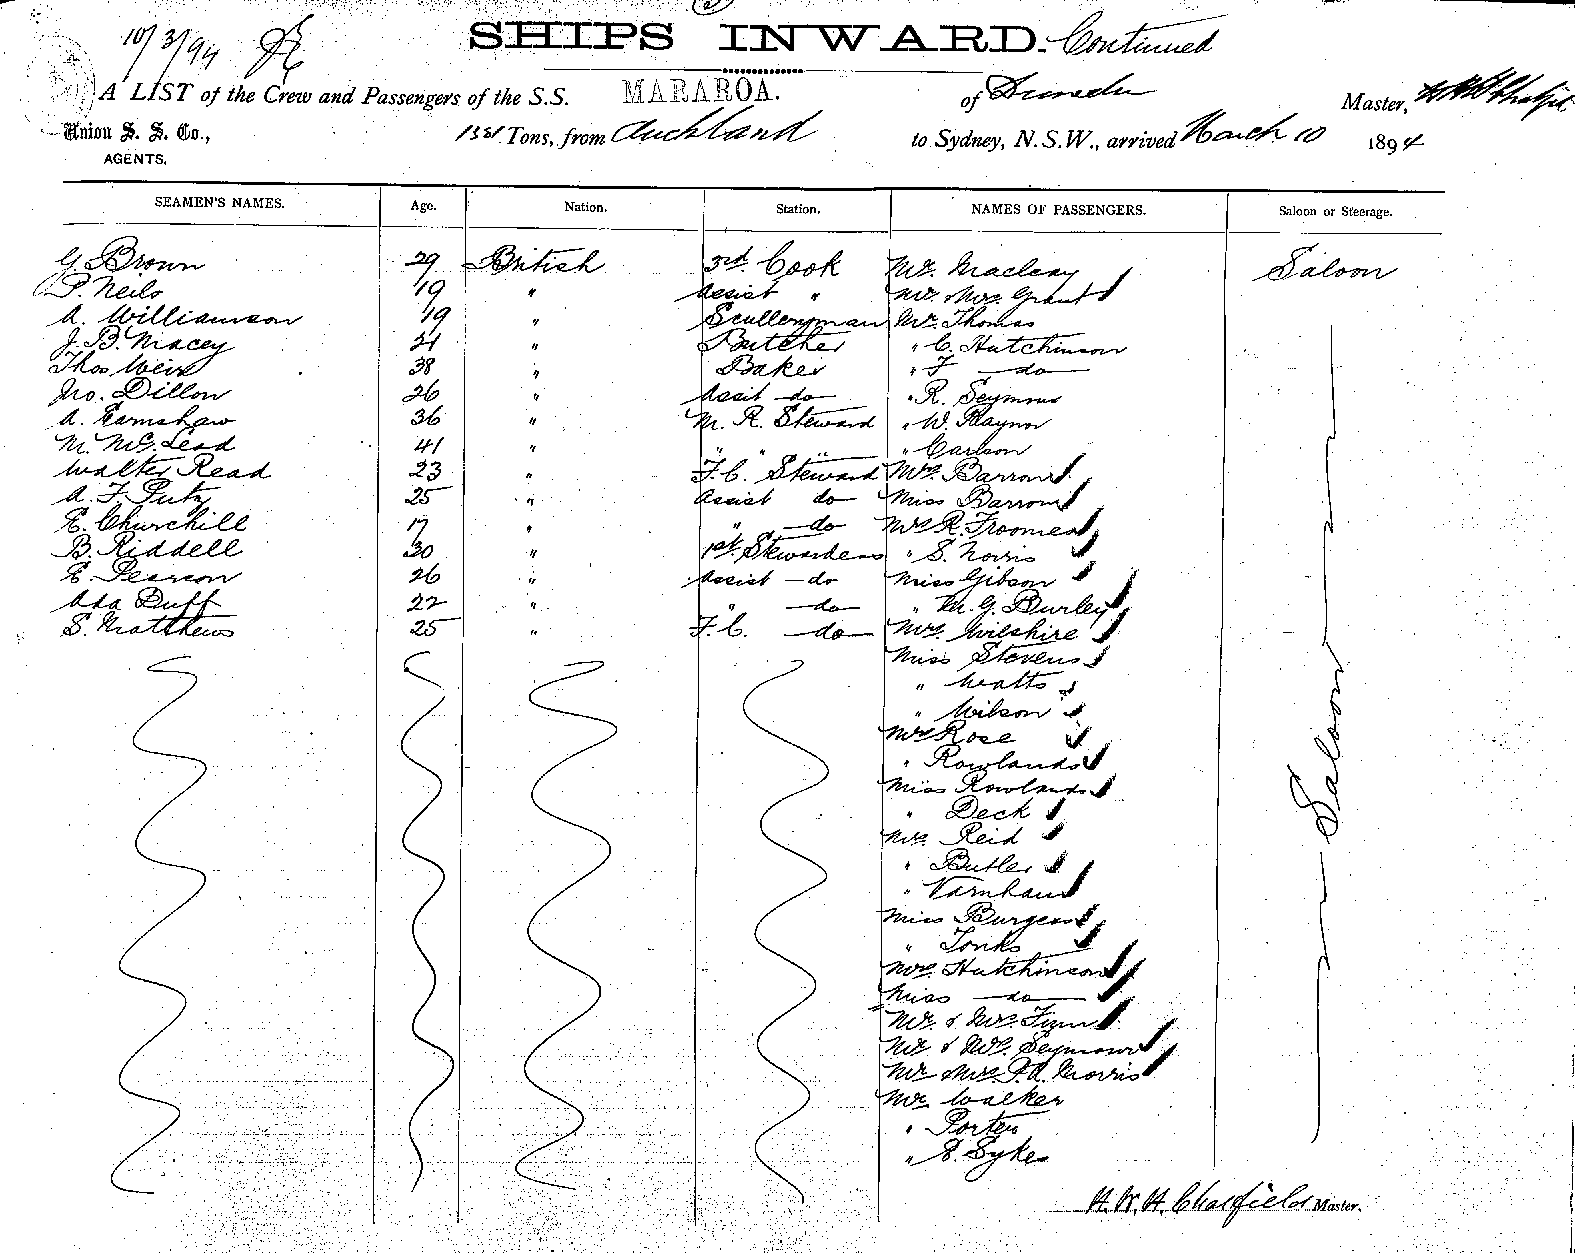 10/3/94
SHIPS INWARD. Continued
A LIST of the Crew and Passengers of the S.S. MARAROA. of Dunedin Master,
Union S. S. Co., 1381 Tons, from Auckland to Sydney, N.S.W., arrived March 10 1894
AGENTS.
SEAMEN'S NAMES. Age. Nation. Station. NAMES OF PASSENGERS. Saloon or Steerage.
G. Brown 29 British 3rd Cook Mr. Macleay Saloon
P. Neils 19 " Assist " Mr. Mrs. Grant
A. Williamson 19 " Sculleryman Mr. Thomas
J. B. Macey 21 " Butcher " C. Hutchinson
Thos Weir 38 " Baker " F — do —
Jno. Dillon 26 " Assit — do " R. Seymour
A. Earnshaw 36 " M. R. Steward " W. Raynor
M. Mc. Leod 41 " " " " " Carlson
Walter Read 23 " F. C. Steward Mrs. Barron
A. F. Putz 25 " Assist do — Miss Barron
E. Churchill 17 " " — do Mrs R. Froomes
B. Riddell 30 " 1st. Stewardess " S. Norris
E. Pearson 26 " Assist — do Miss Gibson
Ada Duff 22 " " — do — " M. G. Burley
S. Matthews 25 " F. C. — do — Mrs. Wilshire
Miss Stevens
" Watts
" Wilson
Mrs Rose
" Rowlands
Miss Rowlands
" Deck
Mrs. Reid
" Butler
" Varnham
Miss Burgess
" Tonks
Mrs. Hutchinson
Miss — do —
Mr. & Mrs. Flynn
Mr & Mrs. Seymour
Mr Mrs. P. A. Morris
Mr Walker
" Porter
" S. Syke
— Saloon —
H. W. H. Chatfield Master.